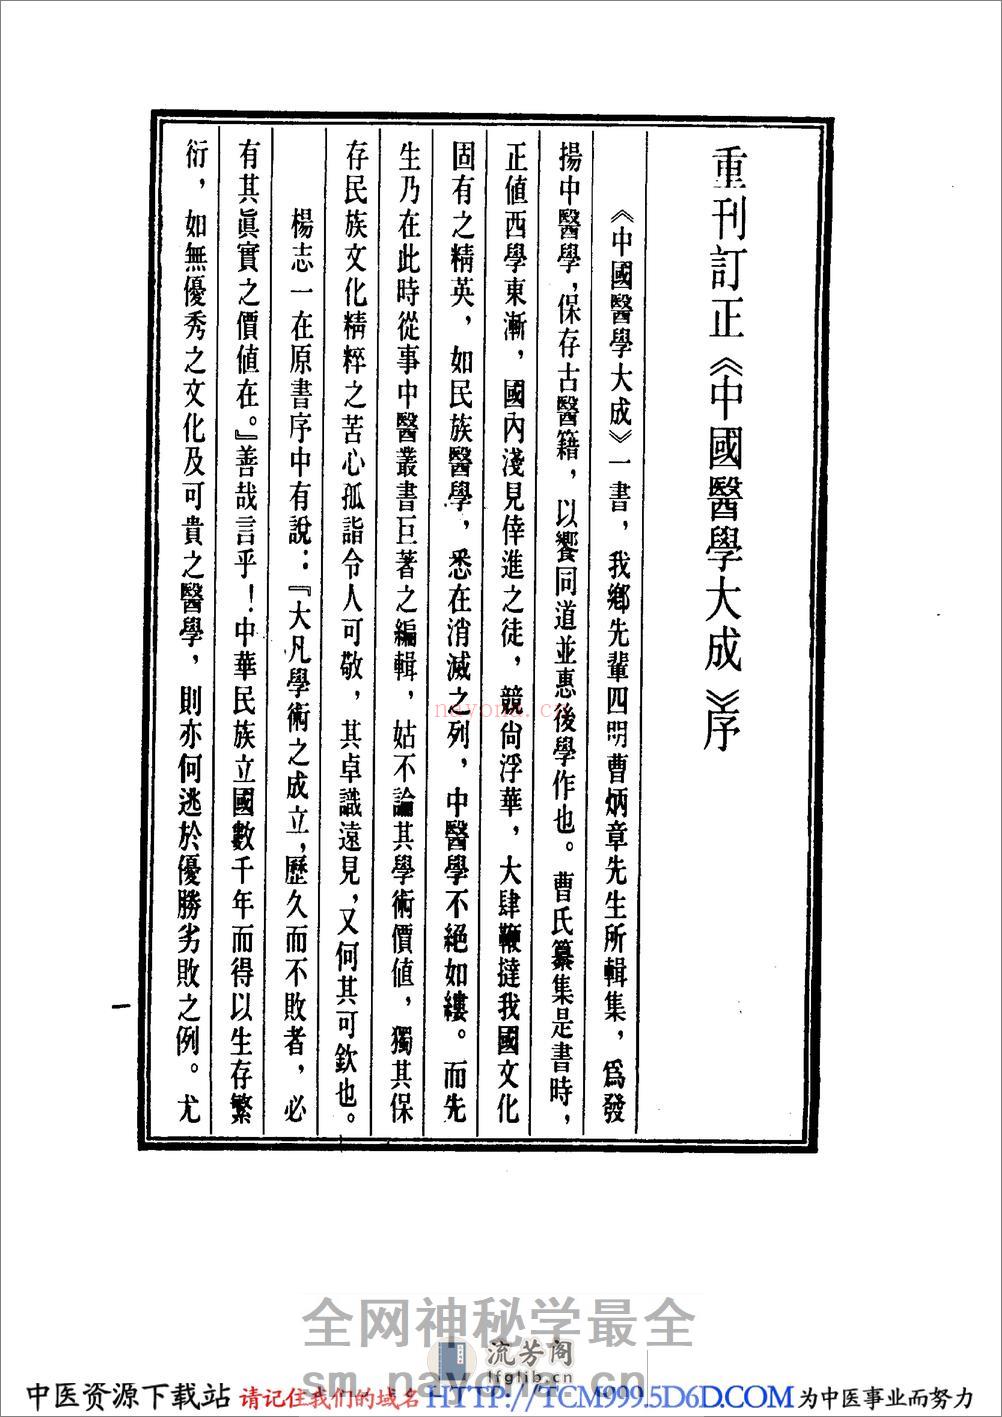 重刊訂正《中國醫學大成》序
《中國醫學大成》一書，我鄉先輩四明曹炳章先生所輯集，爲發
揚中醫學，保存古醫籍，以饗同道並惠後學作也。曹氏纂集是書時，
正值西學東漸，國內淺見倖進之徒，競尙浮華，大肆鞭撻我國文化
固有之精英，如民族醫學，悉在消滅之列，中醫學不絕如縷。而先
生乃在此時從事中醫叢書巨著之編輯，姑不論其學術價値，獨其保
存民族文化精粹之苦心孤詣令人可敬，其卓識遠見，又何其可欽也。
楊志一在原書序中有說：『大凡學術之成立，歷久而不敗者，必
有其眞實之價値在。』善哉言乎！中華民族立國數千年而得以生存繁
衍，如無優秀之文化及可貴之醫學，則亦何逃於優勝劣敗之例。尤
一
nayona.cn
全网神秘学最全
流芳阁
lfglib.cn
sm.nayona.cn
中医资源下载站 请记住我们的域名 HTTP://TCM999.5D6D.COM 为中医事业而努力